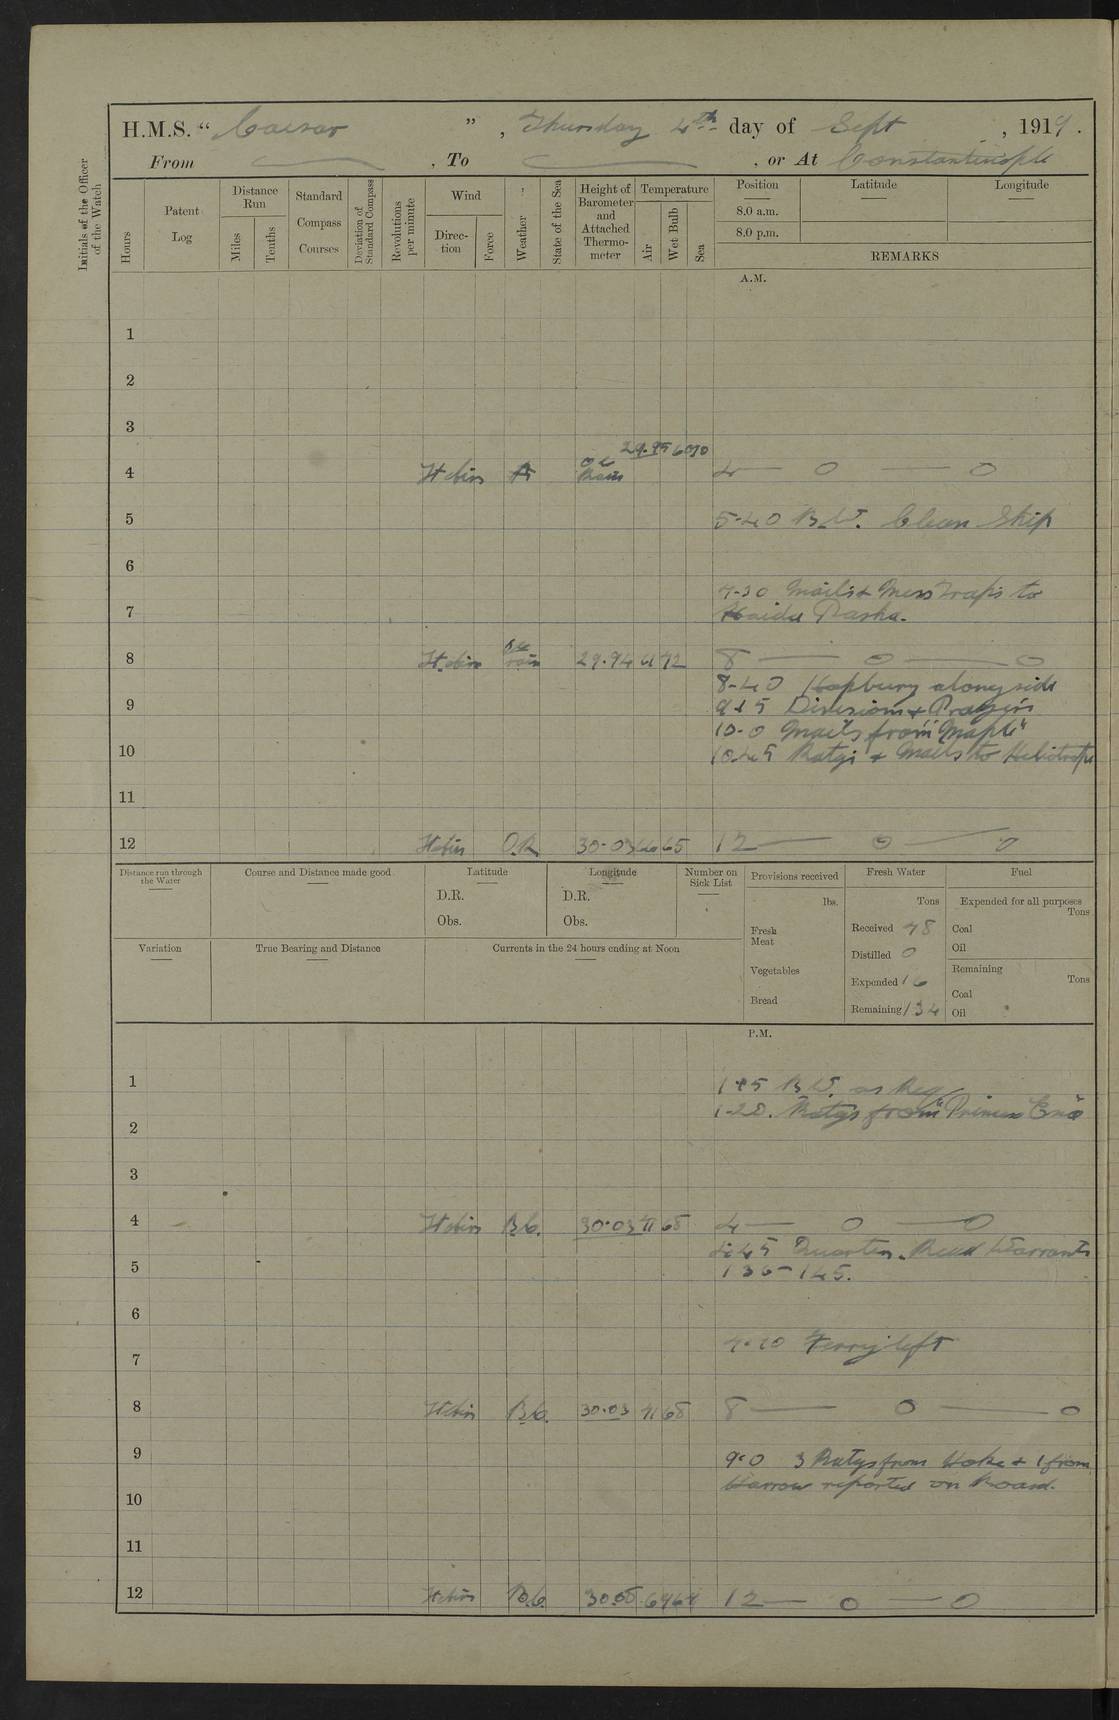 H.M.S. “ Caesar ” , Thursday 4th day of Sept , 1919 .
From , To , or At Constantinople
Initials of the Officer of the Watch
Hours
Patent Log
Distance Run
Miles
Tenths
Standard Compass Courses
Deviation of Standard Compass
Revolutions per minute
Wind
Direction
Force
Weather
State of the Sea
Height of Barometer and Attached Thermometer
Temperature
Air
Wet Bulb
Sea
Position Latitude Longitude
8.0 a.m.
8.0 p.m.
REMARKS
A.M.
1
2
3
29.95
4 4 — 0 — 0
5 5-40 Clean Ship
6
7-30 Mails & Mess Traps to
7 Haida Pasha.
8 rain 29.94 72 8 — 0 — 0
8-40 alongside
9 Divisions & Prayers
10-0 Mails from "Maple"
10 10.45 & Mails to Heliotrope
11
12 O.R. 30.03 65 12 — 0 — 0
Distance run through the Water
Course and Distance made good
Latitude
D.R.
Obs.
Longitude
D.R.
Obs.
Number on Sick List
Provisions received
lbs.
Fresh Meat
Vegetables
Bread
Fresh Water
Tons
Received 48
Distilled 0
Expended 16
Remaining 134
Fuel
Expended for all purposes
Tons
Coal
Oil
Remaining
Tons
Coal
Oil
Variation
True Bearing and Distance
Currents in the 24 hours ending at Noon
P.M.
1 as Req
1-20. Ratgs from "Princess Ena"
2
3
4 B.C. 30.03 71 68 4 — 0 — 0
4.45 Quarters. Read Warrants
5 136-145.
6
7 Ferry left
8 B.C. 30.03 71 68 8 — 0 — 0
9 9.0 3 Ratgs from & 1 from
Harrow reported on Board.
10
11
12 B.C. 12 — 0 — 0